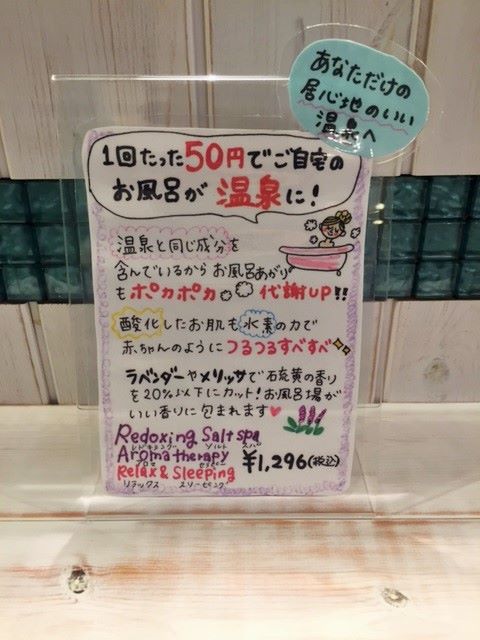 あなただけの
居心地のいい
温泉へ
1回たった50円でご自宅の
お風呂が温泉に!
温泉と同じ成分を
含んでいるからお風呂あがり
もポカポカ 代謝UP!!
酸化したお肌も水素の力で
赤ちゃんのようにつるつるすべすべ
ラベンダーやメリッサで石硫黄の香り
を20%以下にカット!お風呂場が
いい香りに包まれます♥
Redoxing Salt spa
レドキシング ソルト スパ
Aromatherapy
アロマ セラピー
¥1,296(税込)
Relax & Sleeping
リラックス スリーピング